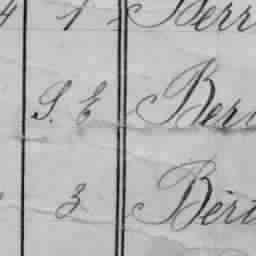 4 1 Berr
S. E Ber
3 Bert